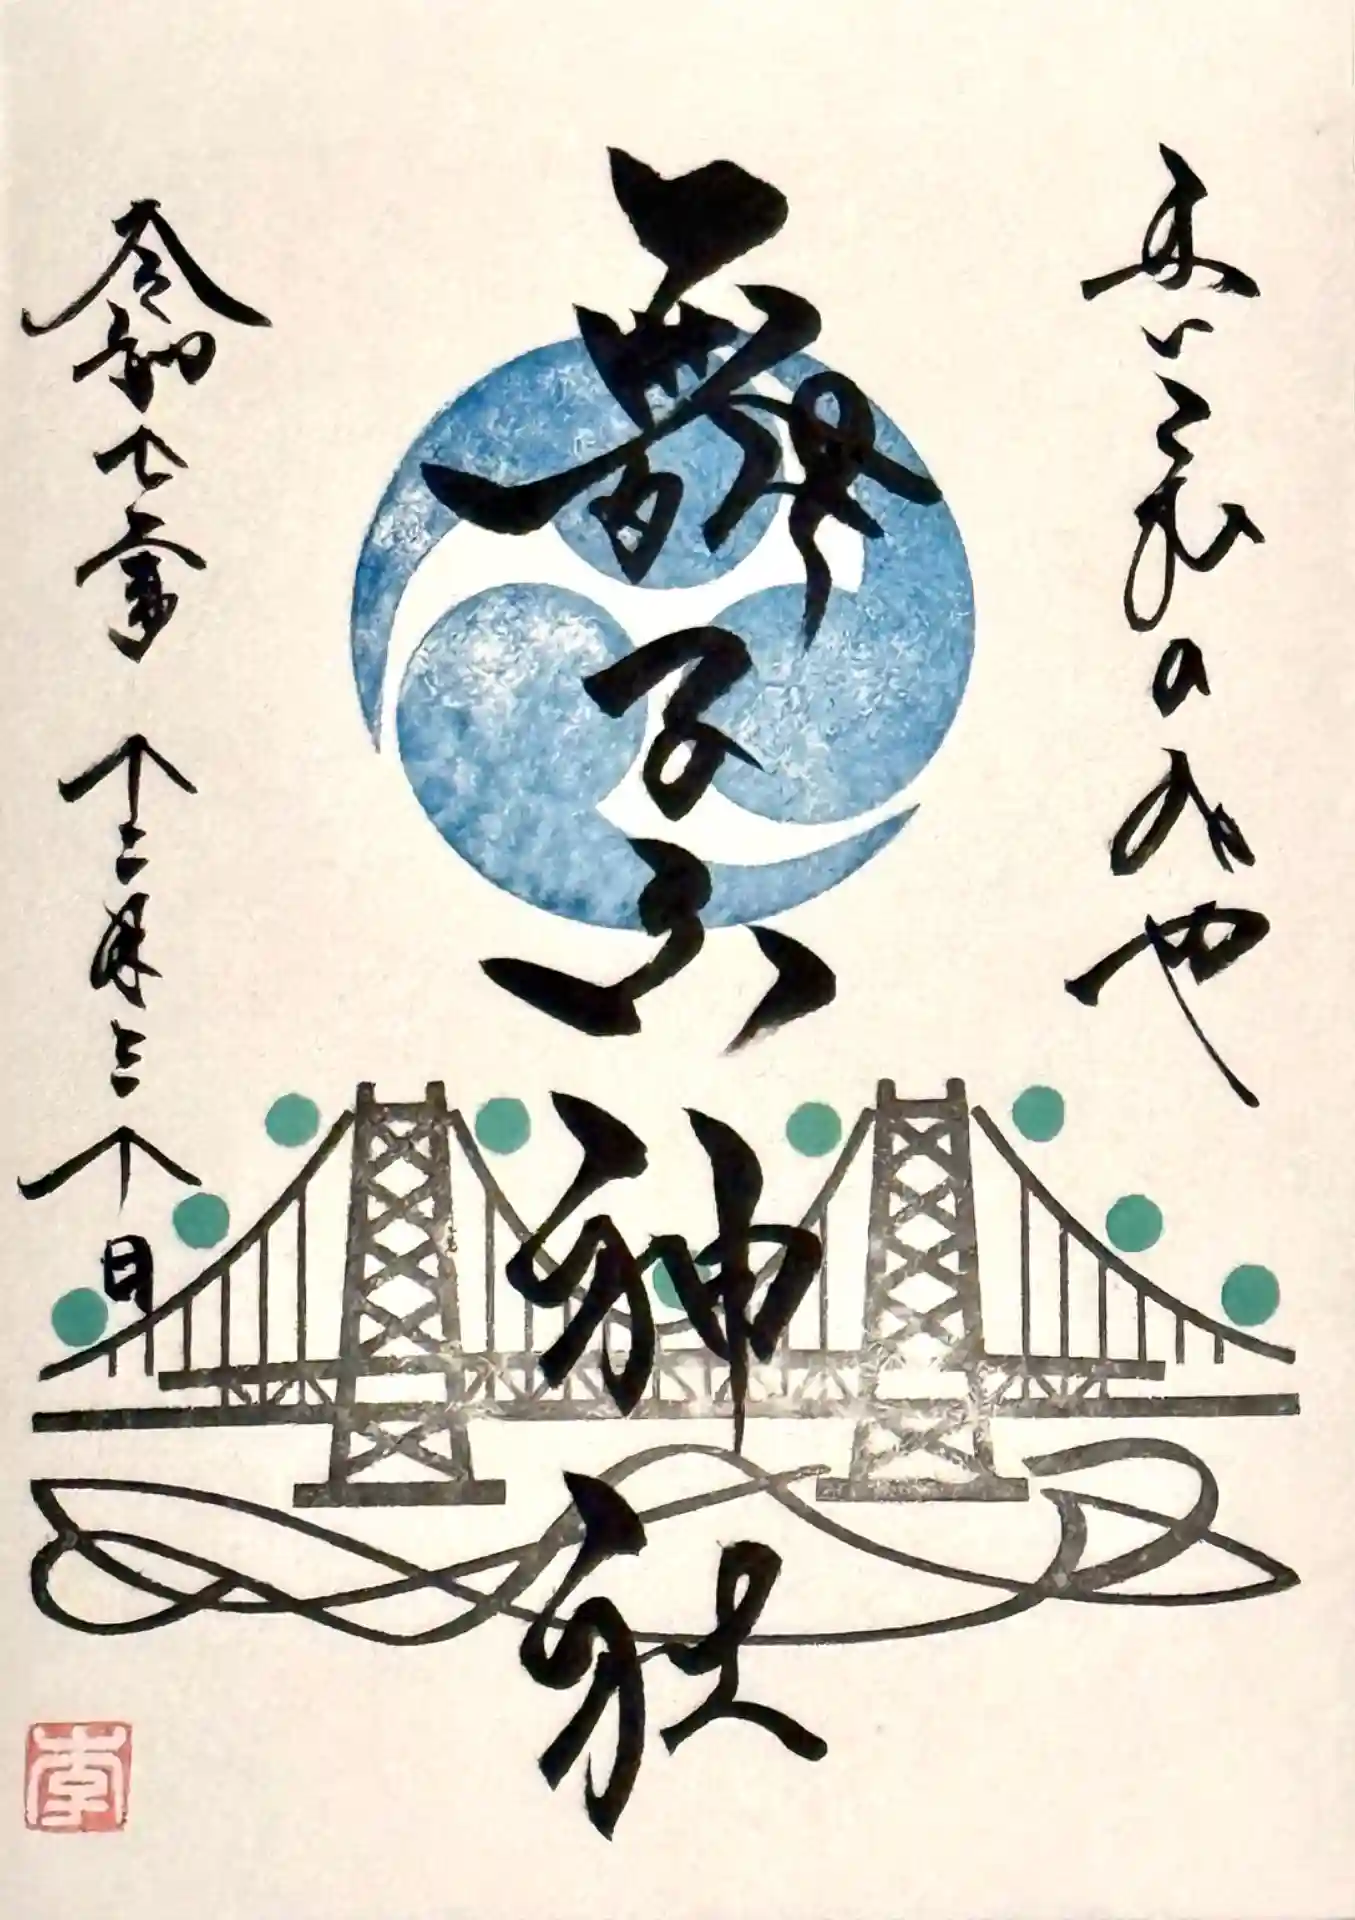 まいこむのみや
舞子六神社
令和七年 十二月三十日